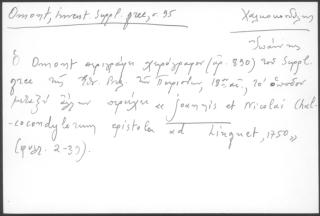 Omont, invent. Suppl. grec, p. 95
Χαλκοκονδύλης
Ἰωάννης
Ὁ Omont περιγράφει χειρόγραφον (ἀρ. 890) τοῦ Suppl.
grec τῆς Ἐθν. Βιβ. τῶν Παρισίων, 18ου αἰ., τὸ ὁποῖον
μεταξὺ ἄλλων περιέχει « Joannis et Nicolai Chal-
cocondylorum epistola ad Linguet, 1750 »
(φύλλ. 2-39).